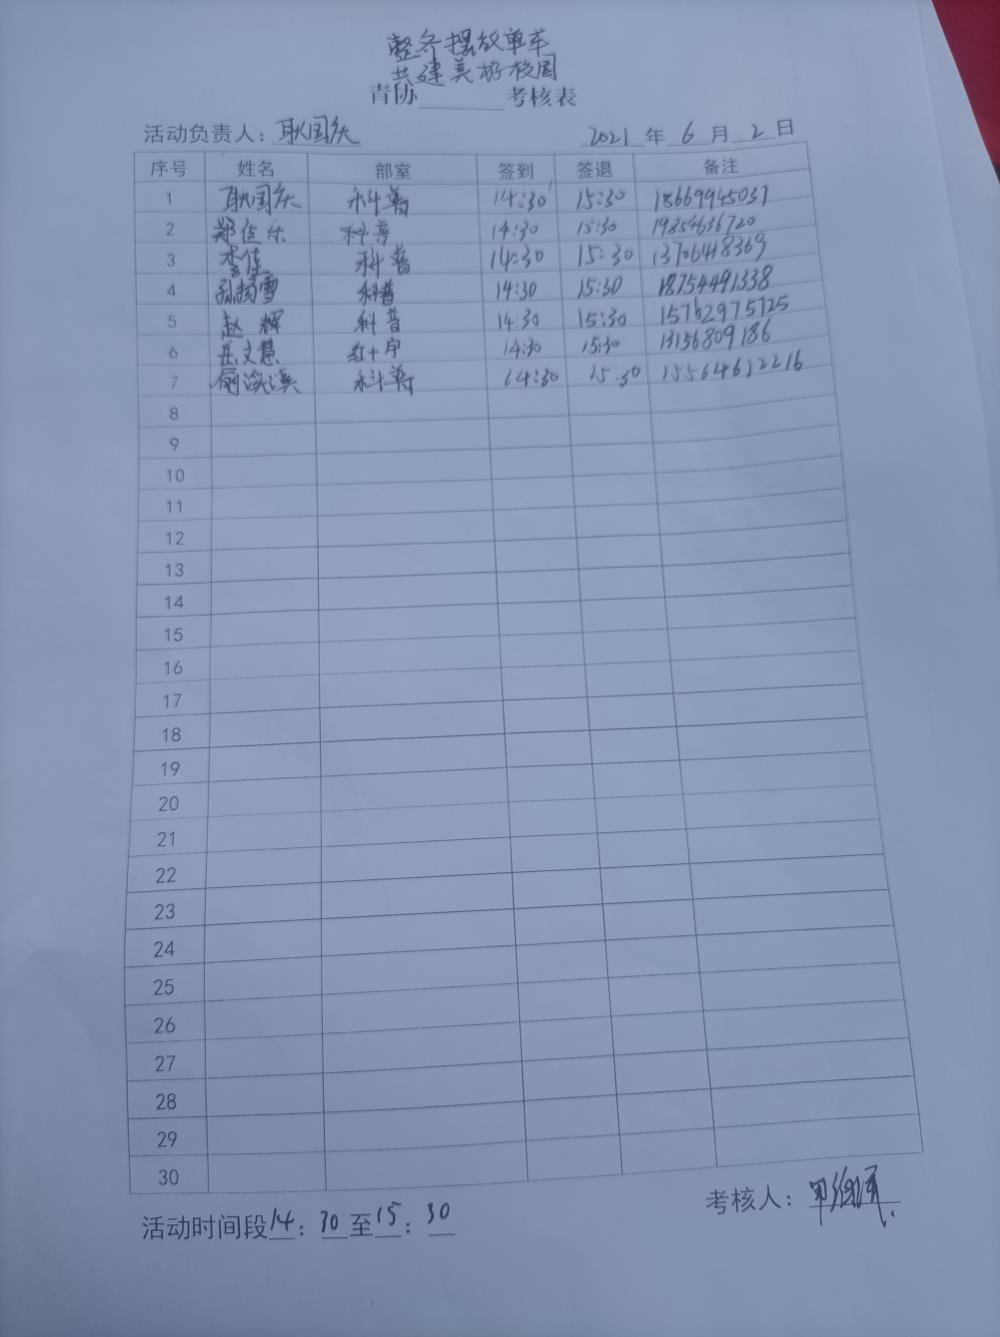 整齐摆放单车
共建美好校园
青协 考核表
活动负责人：耿国庆 2021 年 6 月 2 日
序号 姓名 部室 签到 签退 备注
1 耿国庆 科普 14:30 15:30 18669945037
2 郑佳乐 科普 14:30 15:30 19854636720
3 李佳 科普 14:30 15:30 13706418369
4 孙扬雪 科普 14:30 15:30 18754491338
5 赵辉 科普 14:30 15:30 15762975725
6 岳文慧 红十字 14:30 15:30 13156809186
7 科普 14:30 15:30 15564612216
8
9
10
11
12
13
14
15
16
17
18
19
20
21
22
23
24
25
26
27
28
29
30
考核人：
活动时间段14：30至15：30